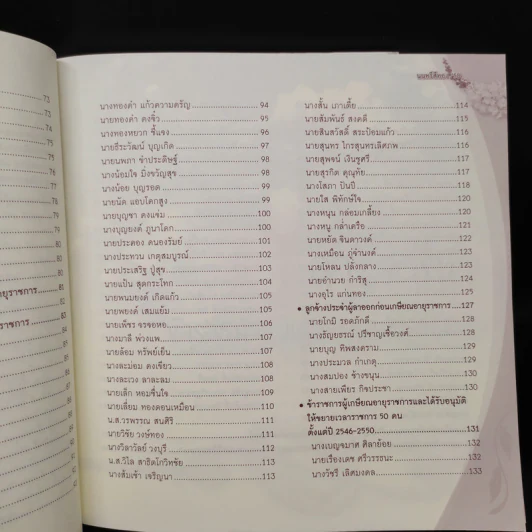 72
73
74
74
75
76
76
77
78
78
79
79
80
80
81
81
82
80
84
นางทองคำ แก้วความตรัญ 94
นายทองคำ คงจิ๋ว 95
นางทองหยวก ชี้แจง 96
นายธีระวัฒน์ บุญเกิด 97
นายนพภา ช่ำประดิษฐ์ 98
นางน้อมใจ มิ่งขวัญสุข 98
นางน้อย บุญรอด 98
นายนัด แอบโคกสูง 99
นายบุญชา คงแช่ม 100
นางบุญยงค์ ภูนาโคก 100
นายประคอง คนองรัมย์ 101
นางประทวน เกตุสมบูรณ์ 102
นายประเสริฐ ปู่สุข 103
นายแป้น สุดกระโทก 103
นายพนมยงค์ เกิดแก้ว 103
นายพยงค์ เสมแย้ม 103
นายเพ็ชร จรจอหอ 104
นางมาลี พ่วงแพ 105
นายล้อม ทรัพย์เย็น 107
นางละม่อม คงเขียว 107
นางละเวง ลาละลม 108
นายเล็ก หอมชื่นใจ 109
นายเลี่ยม ทองดอนเหมือน 110
น.ส.วรพรรณ สนศิริ 110
นายวิชัย วงษ์ทอง 111
นางวิลาวัลย์ วงบุรี 112
น.ส.วิไล สาธิตโกวิทชัย 113
นางส้มเช้า เจริญนา 113
นางสั้น เภาเตี้ย 114
นายสัมพันธ์ สงคดี 115
นายสินสวัสดิ์ สระป้อมแก้ว 116
นายสุนทร ไกรสุนทรเลิศภพ 116
นายสุพจน์ เงินชูศรี 117
นายสุรกิต คุณทัย 117
นางโสภา ปันปี 118
นายใส พิทักษ์ใจ 120
นางหนุน กล่อมเกลี้ยง 120
นางหนู กล่ำเตรือ 121
นายหยัด จินดาวงค์ 122
นางเหมือน ภู่จำนงค์ 123
นายโหลน ปลั่งกลาง 123
นายอำนวย กำริสุ 124
นางอุไร แก่นทอง 124
• ลูกจ้างประจำผู้ลาออกก่อนเกษียณอายุราชการ 127
นายโกมิ รอดภักดี 128
นางธัญยธรณ์ ปรีชาญเชื้อวงค์ 128
นายบุญ ทิพสงคราม 129
นางประมวล กำเกตุ 129
นางสมปอง ช้างขนุน 130
นางสายเพียร กิจประชา 130
• ข้าราชการผู้เกษียณอายุราชการและได้รับอนุมัติ
ให้ขยายเวลาราชการ 50 คน
ตั้งแต่ปี 2546-2550 131
นางเบญจมาศ ศิลาย้อย 132
นายเรืองเดช ศรีวรรธนะ 132
นางวัชรี เลิศมงคล 133